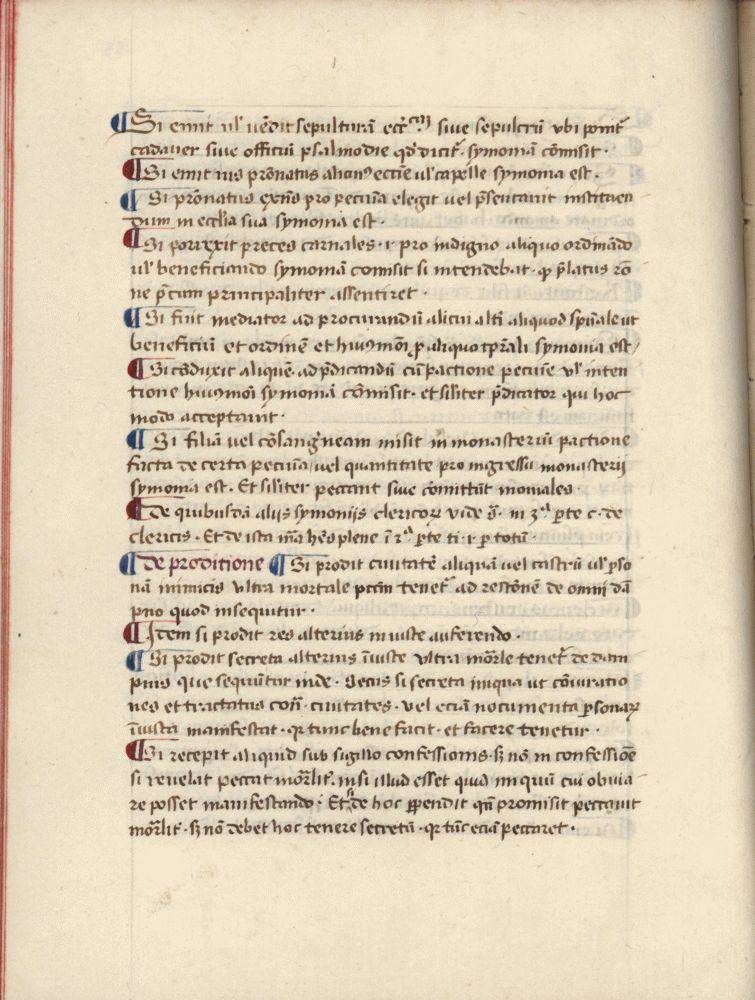 ¶ Si emit ul' uēdit sepulturā sive sepulcrū ubi ponit᷑
cadauer sive officiū psalmodie qd' dicit᷑ · symoniā cōmisit ·
¶ Si emit ius pr̄onatus alicuiꝰ eccl̄ie ul' capelle symonia est ·
¶ Si pr̄onatus extn̄s pro pecunia elegit vel p̄sentauit instituen
dum in eccl̄ia sua symonia est ·
¶ Si porrexit preces carnales · ⁊ pro indigno aliquo ordinādo
ul' beneficiando symoniā comisit si intendebat · ꝙ p̄latus rō
ne p̄cum principaliter assentiret ·
¶ Si fuit mediator ad procurandū alicui alt̄i aliquod sp̄uale ut
beneficiū et ordinē et huiꝰmōi ꝓ aliquo tp̄rali symonia est /
¶ Si cōduxit aliquē · ad p̄dicandū cū pactione pecunie ul' inten
tione huiꝰmōi symoniā cōmisit · et sil'iter p̄dicator qui hoc
modo acceptauit ·
¶ Si filiā vel cōsanguineam misit in monasteriū pactione
facta de certa pecunia / vel quantitate pro ingressu monasterii
symonia est · Et sil'iter peccant sive cōmittūt moniales ·
¶ De quibusdā aliis symoniis clericoꝝ vide s̄ · in 3ᵃ ꝑte c · de
clericis · Et de ista mā hēs plene ī 2ᵃ ꝑte ti · 1 ꝑ totū ·
¶ De proditione ¶ Si prodit ciuitatē aliquā vel castrū ul' ꝑso
nā inimicis ultra mortale pctm̄ tenet᷑ ad restōnem̄ de omni dā
pno quod insequitur ·
¶ Item si prodit res alterius iniuste auferendo ·
¶ Si prodit secreta alterius īiuste ultra mōrle tenet᷑ de dam
pnis que sequūtur inde · Secus si secreta iniqua ut cōiuratio
nes et tractatus con̄ · ciuitates · vel eciā nocumenta ꝑsonaꝝ
īiusta manifestat · qꝛ tunc bene facit · et facere tenetur ·
¶ Si recepit aliquid sub sigillo confessionis · sꝫ nō in confessiōe
si reuelat peccat mōrlit᷑ · nisi illud esset quid iniquū cui obuia
re posset manifestando : Et si de hoc qn̄ promisit peccauit
mōrlit᷑ · sꝫ nō debet hoc tenere secretū · qꝛ tūc eciā peccaret ·